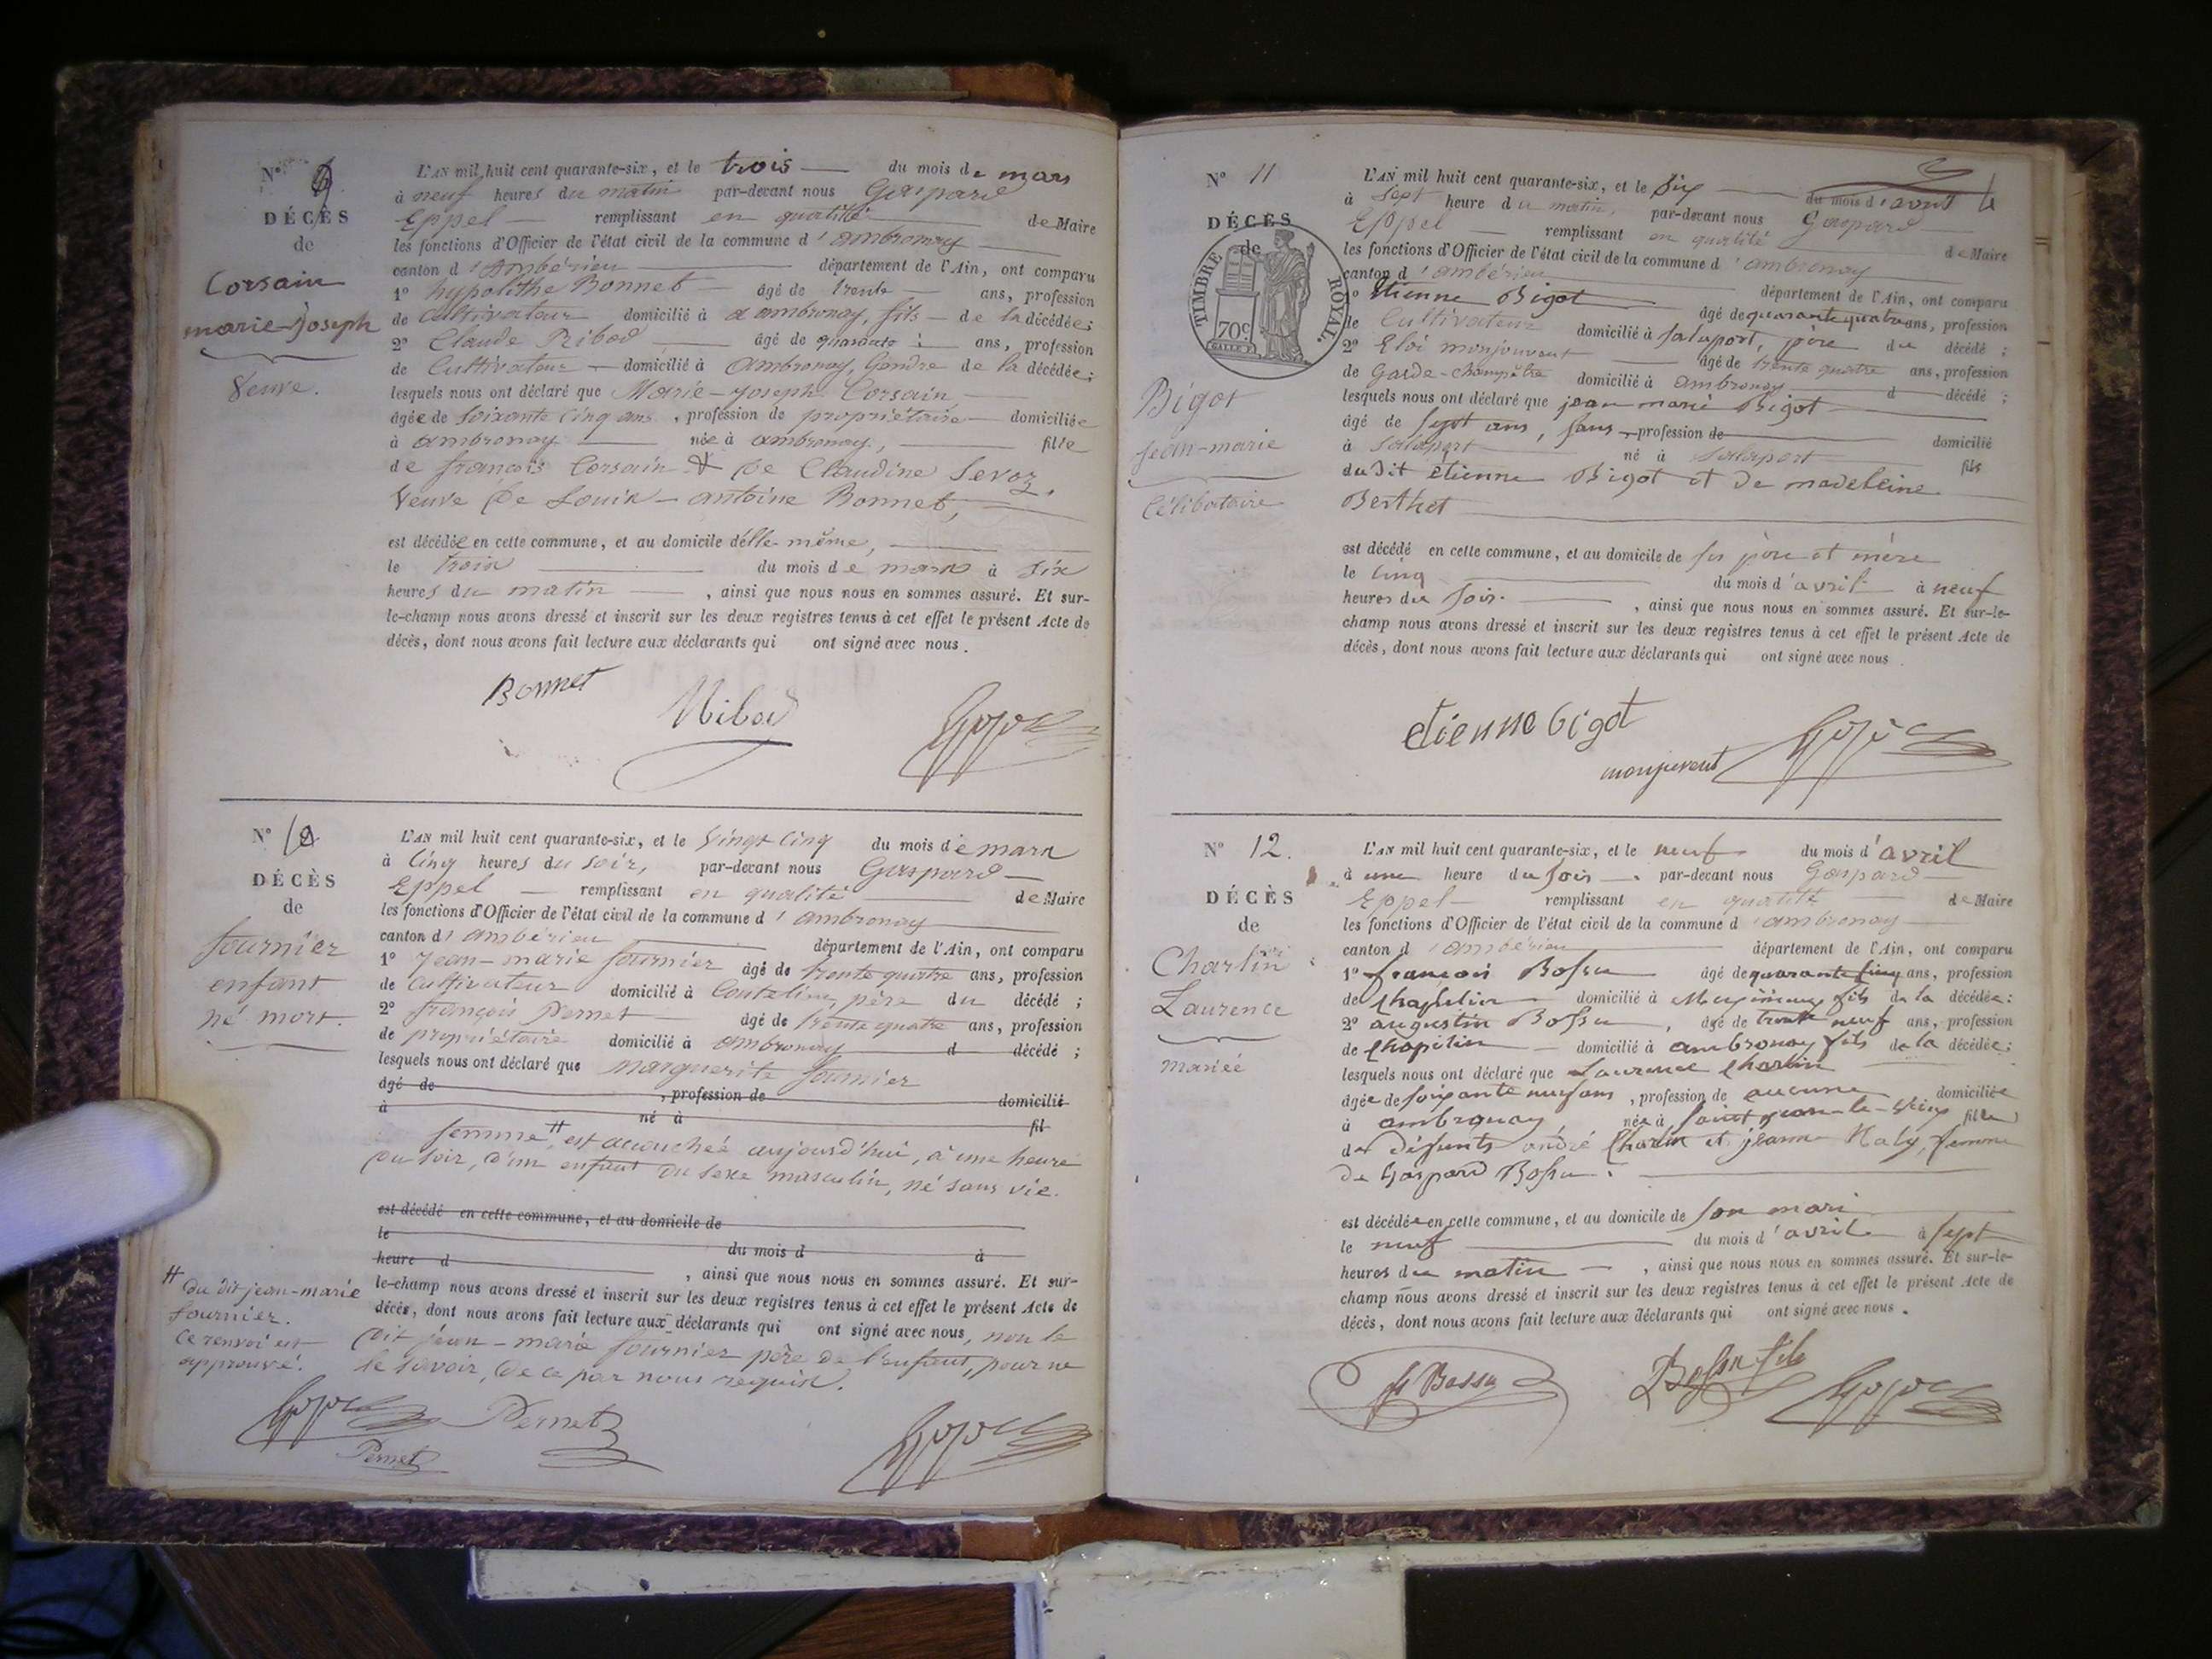 N° 9
DÉCÈS
de
Corsain
marie-joseph
Veuve.
L'AN mil huit cent quarante-six, et le trois du mois de mars
à neuf heures du matin par-devant nous Gaspard
Eppel remplissant en qualité de Maire
les fonctions d'Officier de l'état civil de la commune d'ambronay
canton d'Ambérieu département de l'Ain, ont comparu
1° hypolithe Bonnet âgé de trente ans, profession
de Cultivateur domicilié à ambronay, fils de la décédée;
2° Claude Ribod âgé de quarante ans, profession
de Cultivateur domicilié à ambronay, Gendre de la décédée;
lesquels nous ont déclaré que Marie-joseph Corsain
âgée de soixante cinq ans, profession de propriétaire domiciliée
à ambronay née à ambronay, fille
de françois Corsain & de Claudine Sevoz.
Veuve de Louis-antoine Bonnet,
est décédée en cette commune, et au domicile d'elle-même,
le trois du mois de mars à six
heures du matin, ainsi que nous nous en sommes assuré. Et sur-
le-champ nous avons dressé et inscrit sur les deux registres tenus à cet effet le présent Acte de
décès, dont nous avons fait lecture aux déclarants qui ont signé avec nous.
Bonnet
Ribod
N° 10
DÉCÈS
de
fournier
enfant
né mort.
L'AN mil huit cent quarante-six, et le Vingt cinq du mois de mars
à cinq heures du soir, par-devant nous Gaspard
Eppel remplissant en qualité de Maire
les fonctions d'Officier de l'état civil de la commune d'ambronay
canton d'ambérieu département de l'Ain, ont comparu
1° Jean-marie fournier âgé de trente quatre ans, profession
de Cultivateur domicilié à père du décédé;
2° françois Pernet âgé de trente quatre ans, profession
de propriétaire domicilié à ambronay d décédé;
lesquels nous ont déclaré que marguerite fournier
âgé de , profession de domicilié
à né à fil
femme # est accouchée aujourd'hui, à une heure
du soir, d'un enfant du sexe masculin, né sans vie.
est décédé en cette commune, et au domicile de
le du mois d à
heure d , ainsi que nous nous en sommes assuré. Et sur-
le-champ nous avons dressé et inscrit sur les deux registres tenus à cet effet le présent Acte de
décès, dont nous avons fait lecture aux déclarants qui ont signé avec nous, non le
dit jean-marie fournier père de l'enfant, pour ne
le savoir, de ce par nous requis.
# du dit jean-marie
fournier.
Ce renvoi est
approuvé.
Pernet
Pernet
N° 11
DÉCÈS
de
TIMBRE ROYAL.
70c
Bigot
jean-marie
Célibataire
L'AN mil huit cent quarante-six, et le six du mois d'avril
à sept heure du matin, par-devant nous Gaspard
Eppel remplissant en qualité de Maire
les fonctions d'Officier de l'état civil de la commune d'ambronay
canton d'ambérieu département de l'Ain, ont comparu
1° Etienne Bigot âgé de quarante quatre ans, profession
de Cultivateur domicilié à Salaport, père du décédé;
2° Eloi monjouvent âgé de trente quatre ans, profession
de Garde-champêtre domicilié à ambronay d décédé;
lesquels nous ont déclaré que jean marie Bigot
âgé de sept ans, sans profession de domicilié
à Salaport né à Salaport fils
du dit étienne Bigot et de madeleine
Berthet
est décédé en cette commune, et au domicile de ses père et mère
le cinq du mois d'avril à neuf
heures du soir. , ainsi que nous nous en sommes assuré. Et sur-le-
champ nous avons dressé et inscrit sur les deux registres tenus à cet effet le présent Acte de
décès, dont nous avons fait lecture aux déclarants qui ont signé avec nous.
etienne bigot
monjuvent
N° 12.
DÉCÈS
de
Charlin
Laurence
mariée
L'AN mil huit cent quarante-six, et le neuf du mois d'avril
à une heure du soir par-devant nous Gaspard
Eppel remplissant en qualité de Maire
les fonctions d'Officier de l'état civil de la commune d'ambronay
canton d'ambérieu département de l'Ain, ont comparu
1° françois Bossu âgé de quarante cinq ans, profession
de domicilié à fils de la décédée;
2° augustin Bossu, âgé de trente neuf ans, profession
de domicilié à ambronay fils de la décédée;
lesquels nous ont déclaré que Laurence Charlin
âgée de ans, profession de aucune domiciliée
à ambronay née à fille
des défunts andré Charlin et jeanne femme
de Gaspard Bossu.
est décédée en cette commune, et au domicile de son mari
le neuf du mois d'avril à sept
heures du matin, ainsi que nous nous en sommes assuré. Et sur-le-
champ nous avons dressé et inscrit sur les deux registres tenus à cet effet le présent Acte de
décès, dont nous avons fait lecture aux déclarants qui ont signé avec nous.
f Bossu
Bossu fils